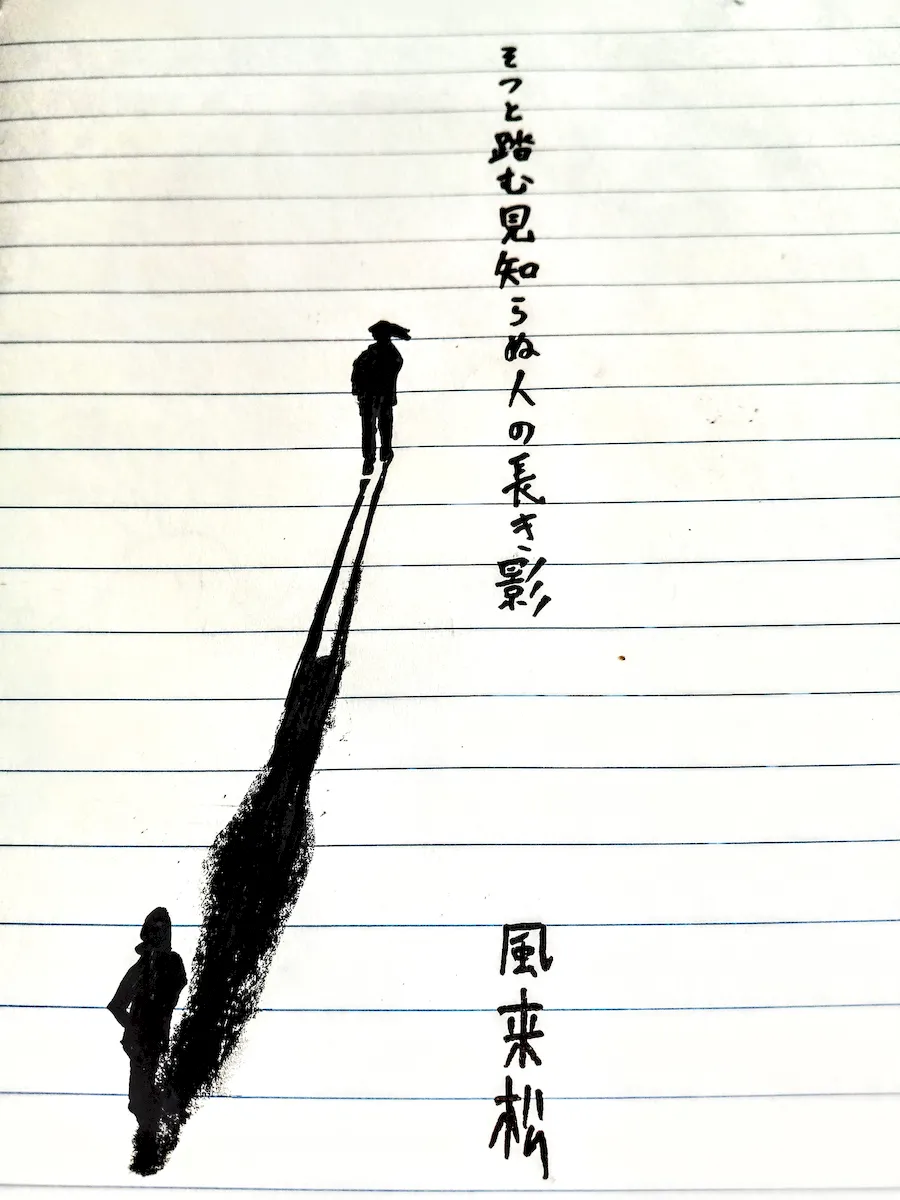 そつと踏む見知らぬ人の長き影
風来松